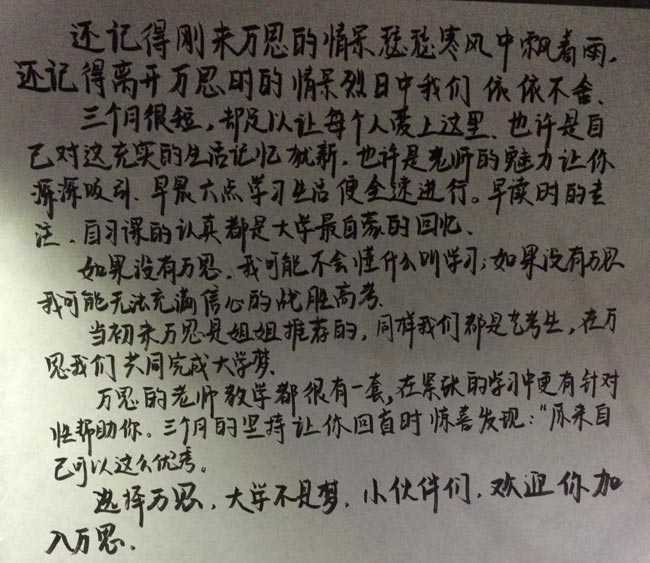 还记得刚来万思的情景瑟瑟寒风中飘着雨,
还记得离开万思时的情景烈日中我们依依不舍、
三个月很短,却足以让每个人爱上这里、也许是自
己对这充实的生活记忆犹新.也许是老师的魅力让你
深深吸引.早晨六点学习生活便全速进行。早读时的专
注、自习课的认真都是大学最自豪的回忆、
如果没有万思、我可能不会懂什么叫学习;如果没有万思
我可能无法充满信心的战胜高考.
当初来万思是姐姐推荐的,同样我们都是艺考生,在万
思我们共同完成大学梦.
万思的老师教学都很有一套,在紧张的学习中更有针对
性帮助你。三个月的坚持让你回首时惊喜发现:“原来自
己可以这么优秀。
选择万思、大学不是梦.小伙伴们.欢迎你加
入万思.